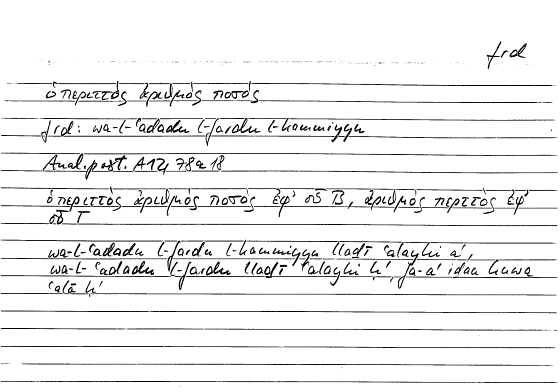 frd
ὁ περιττὸς ἀριθμὸς ποσός
frd: wa-l-ʿadadu l-fardu l-kammiyyu
Anal. post. A 12, 78a18
ὁ περιττὸς ἀριθμὸς ποσὸς ἐφ' οὗ Β, ἀριθμὸς περιττὸς ἐφ'
οὗ Γ
wa-l-ʿadadu l-fardu l-kammiyyu lladī ʿalayhi a',
wa-l-ʿadadu l-fardu lladī ʿalayhi ḥ', fa-a' idan huwa
ʿalā ḥ'